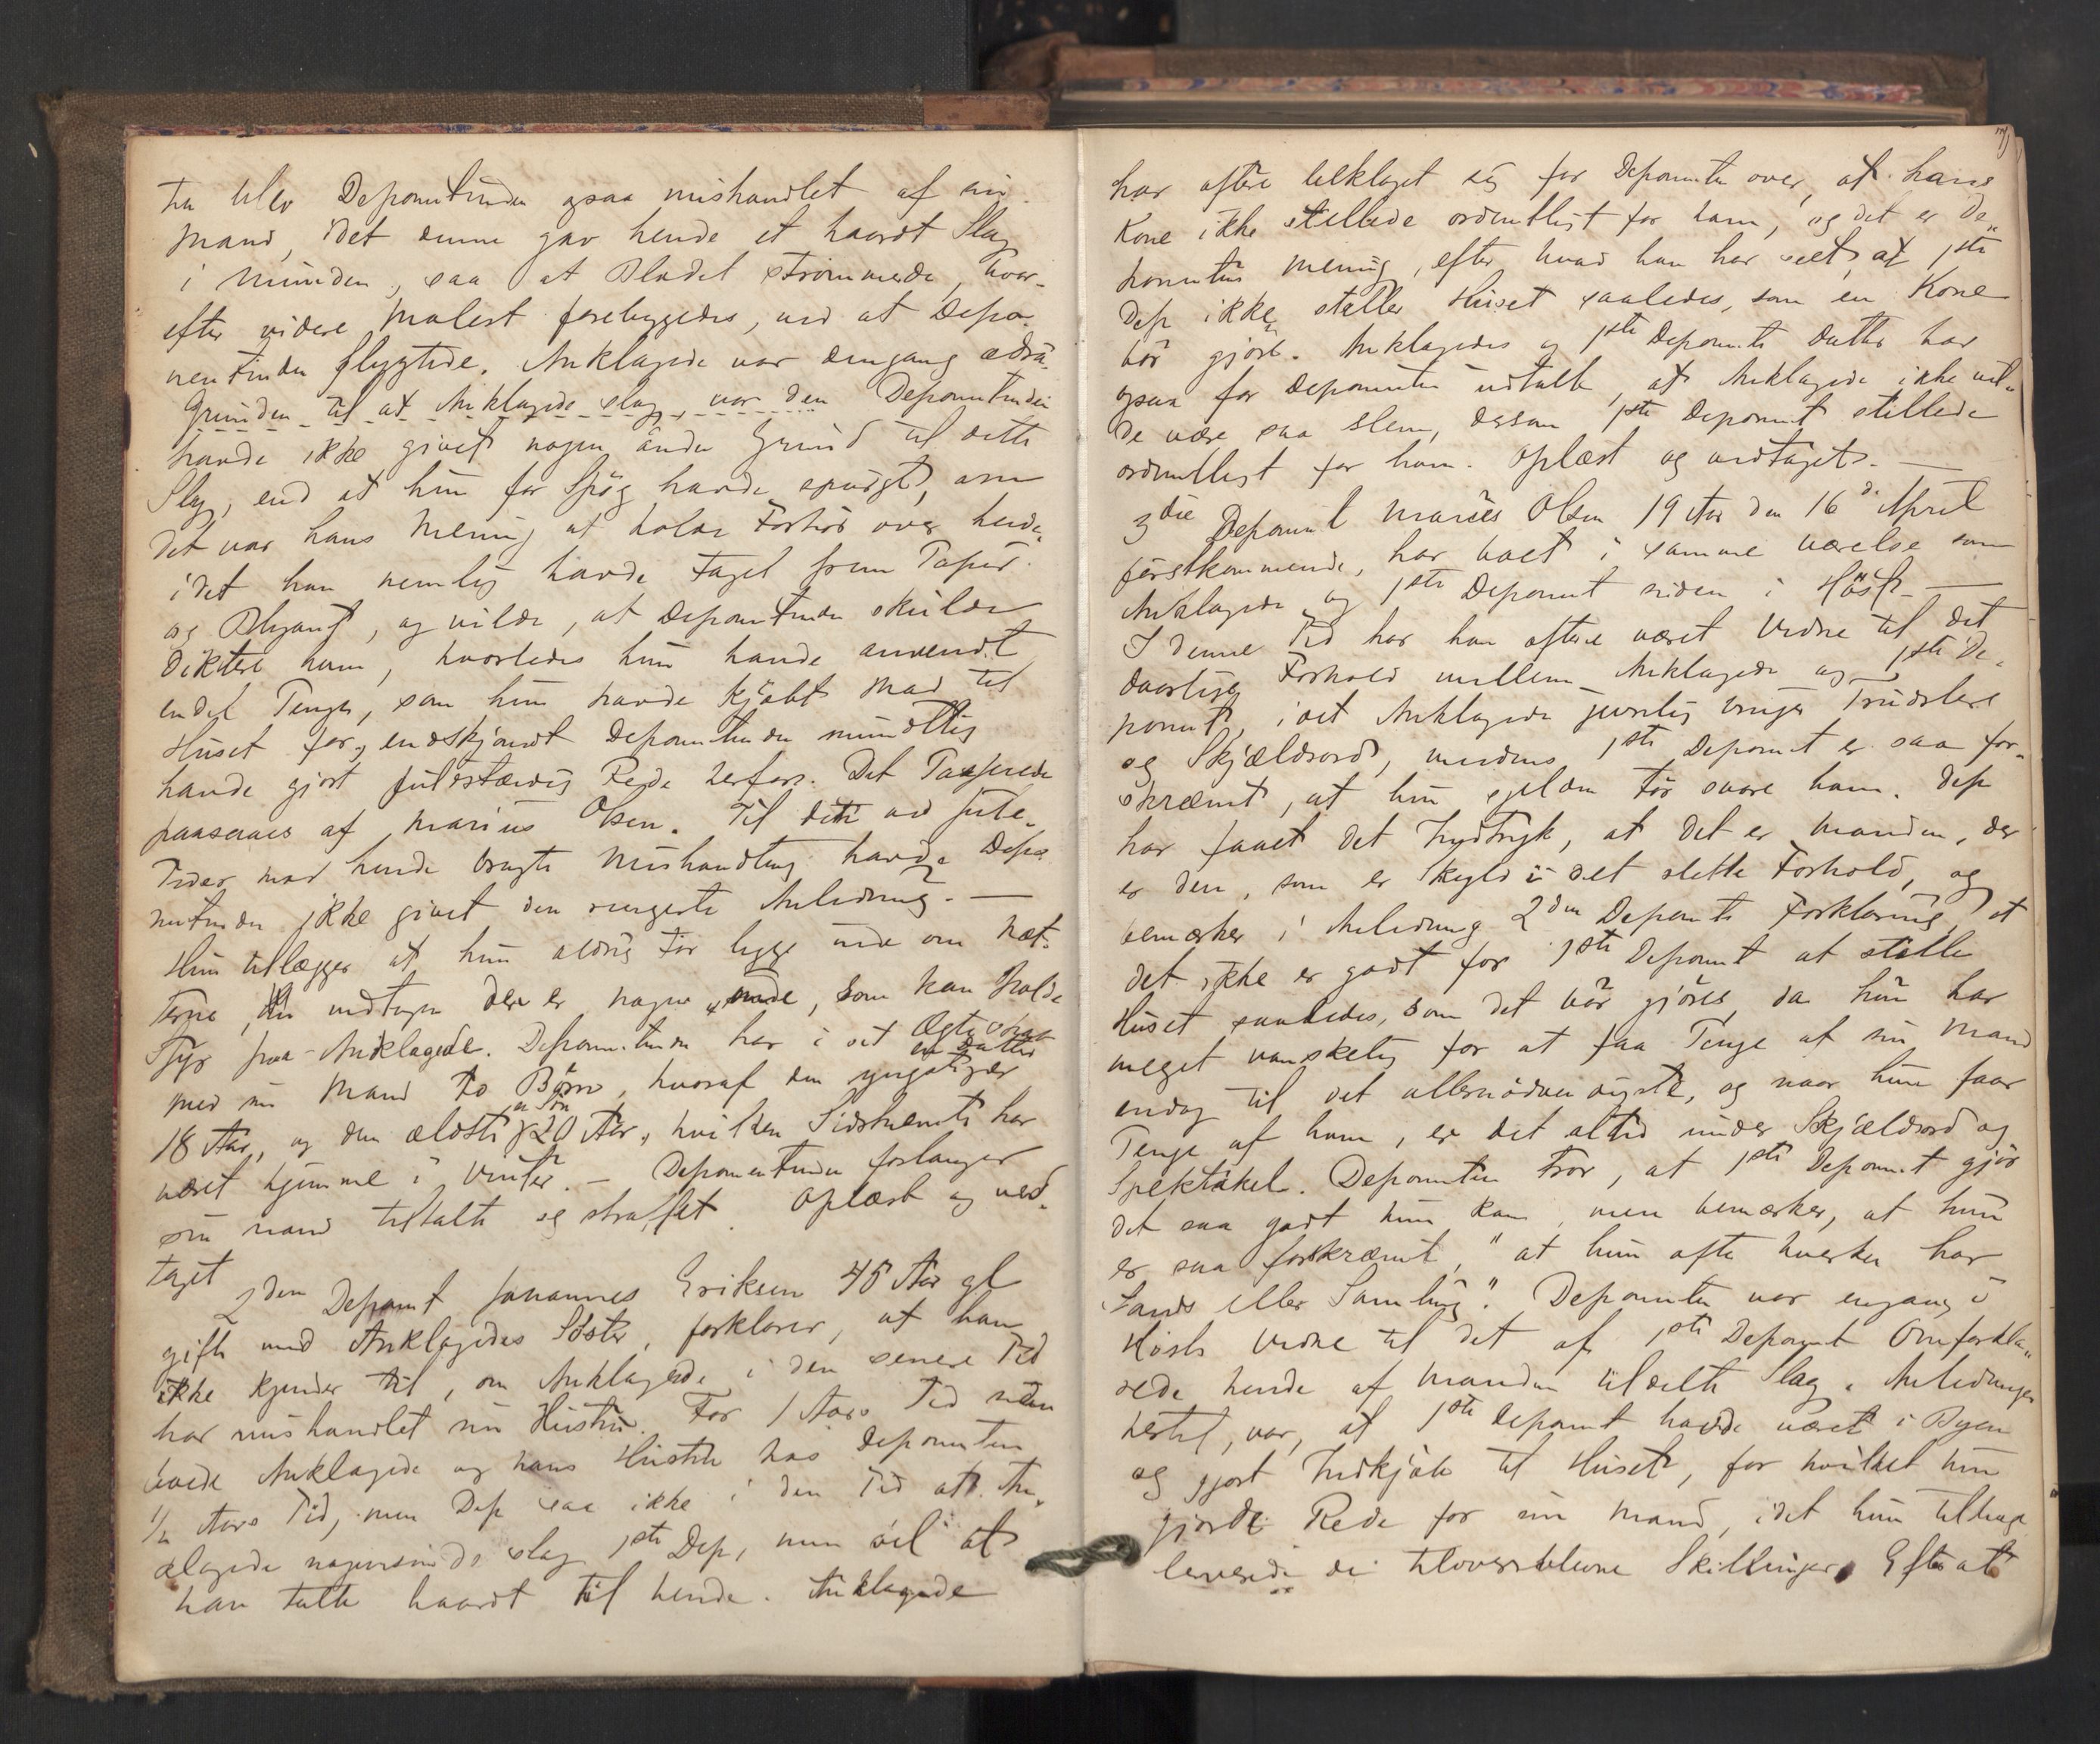 blev Deponentinden ogsaa mishandlet af sin
Mand, idet denne gav hende et haardt Slag
i Munden, saa at Blodet strømmede, hvor-
efter videre Molest forebyggedes, ved at Depo-
nentinden flygtede. Anklagede var dengang ædru.
Grunden til at Anklagede slog, var den Deponentinden
havde ikke givet nogen anden Grund til dette
Slag, end at hun for Spøg havde spurgt, om
det var hans Mening at holde Forhør over hende,
idet han nemlig havde taget frem Papir
og Blyant, og vilde, at Deponentinden skulde
diktere ham, hvorledes hun havde anvendt
endel Penge, som hun havde kjøbt Mad til
Huset for, endskjøndt Deponentinden mundtlig
havde gjort fuldstændig Rede herfor. Det Passerede
paasaaes af Marius Olsen. Til den ved Jule-
tider mod hende brugte Mishandling havde Depo-
nentinden ikke givet den ringeste Anledning. —
Hun tillægger at hun aldrig tør ligge inde om Næt-
terne, undtagen der er nogen inde, som kan holde
Styr paa Anklagede. Deponentinden har i sit Ægteskab
med sin Mand to Børn, hvoraf den yngste, en Datter er
18 Aar, og den ældste, en Søn 20 Aar, hvilken Sidstnævnte har
været hjemme i Vinter. — Deponentinden forlanger
sin Mand tiltalt og straffet. Oplæst og ved-
taget
2den Deponent Johannes Eriksen 45 Aar gl
gift med Anklagedes Søster, forklarer, at han
ikke kjender til, om Anklagede i den senere Tid
har mishandlet sin Hustru. For 1 Aars Tid siden
boede Anklagede og hans Hustru hos Deponenten
½ Aars Tid, men Dep saa ikke i den Tid at An-
klagede nogensinde slog 1ste Dep, men vel at
han talte haardt til hende. Anklagede
har oftere beklaget sig for Deponenten over, at hans
Kone ikke stellede ordentligt for ham, og det er De-
ponentens Mening, efter hvad han har seet, at 1ste
Dep ikke steller Huset saaledes, som en Kone
bør gjøre. Anklagedes og 1ste Deponents Datter har
ogsaa for Deponenten udtalt, at Anklagede ikke vil-
de være saa slem, dersom 1ste Deponent stellede
ordentligt for ham. Oplæst og vedtaget. —
3die Deponent Marius Olsen 19 Aar den 16de April
førstkommende, har boet i samme Værelse som
Anklagede og 1ste Deponent siden i Høst. —
I denne Tid har han oftere været Vidne til det
daarlige Forhold mellem Anklagede og 1ste De-
ponent, idet Anklagede jevnlig bruger Trudsler
og Skjældsord, medens 1ste Deponent er saa for-
skræmt, at hun sjelden tør svare ham. Dep
har faaet det Indtryk, at det er Manden, der
er den, som er Skyld i det slette Forhold, og
bemærker i Anledning 2den Deponents Forklaring, at
det ikke er godt for 1ste Deponent at stelle
Huset saaledes, som det bør gjøres, da hun har
meget vanskelig for at faa Penge af sin Mand
endog til det allernødvendigste, og naar hun faar
Penge af ham, er det altid under Skjældsord og
Spektakel. Deponenten tror, at 1ste Deponent gjør
det saa godt hun kan, men bemærker, at hun
er saa forskræmt, "at hun ofte hverken har
Sands eller Samling". Deponenten var engang i
Høst Vidne til det af 1ste Deponent Omforkla-
rede hende af Manden tildelte Slag. Anledningen
hertil, var, at 1ste Deponent havde været i Byen
og gjort Indkjøb til Huset, for hvilket hun
gjorde Rede for sin Mand, idet hun tilbage
leverede de tiloversblevne Skillinger. Efter at